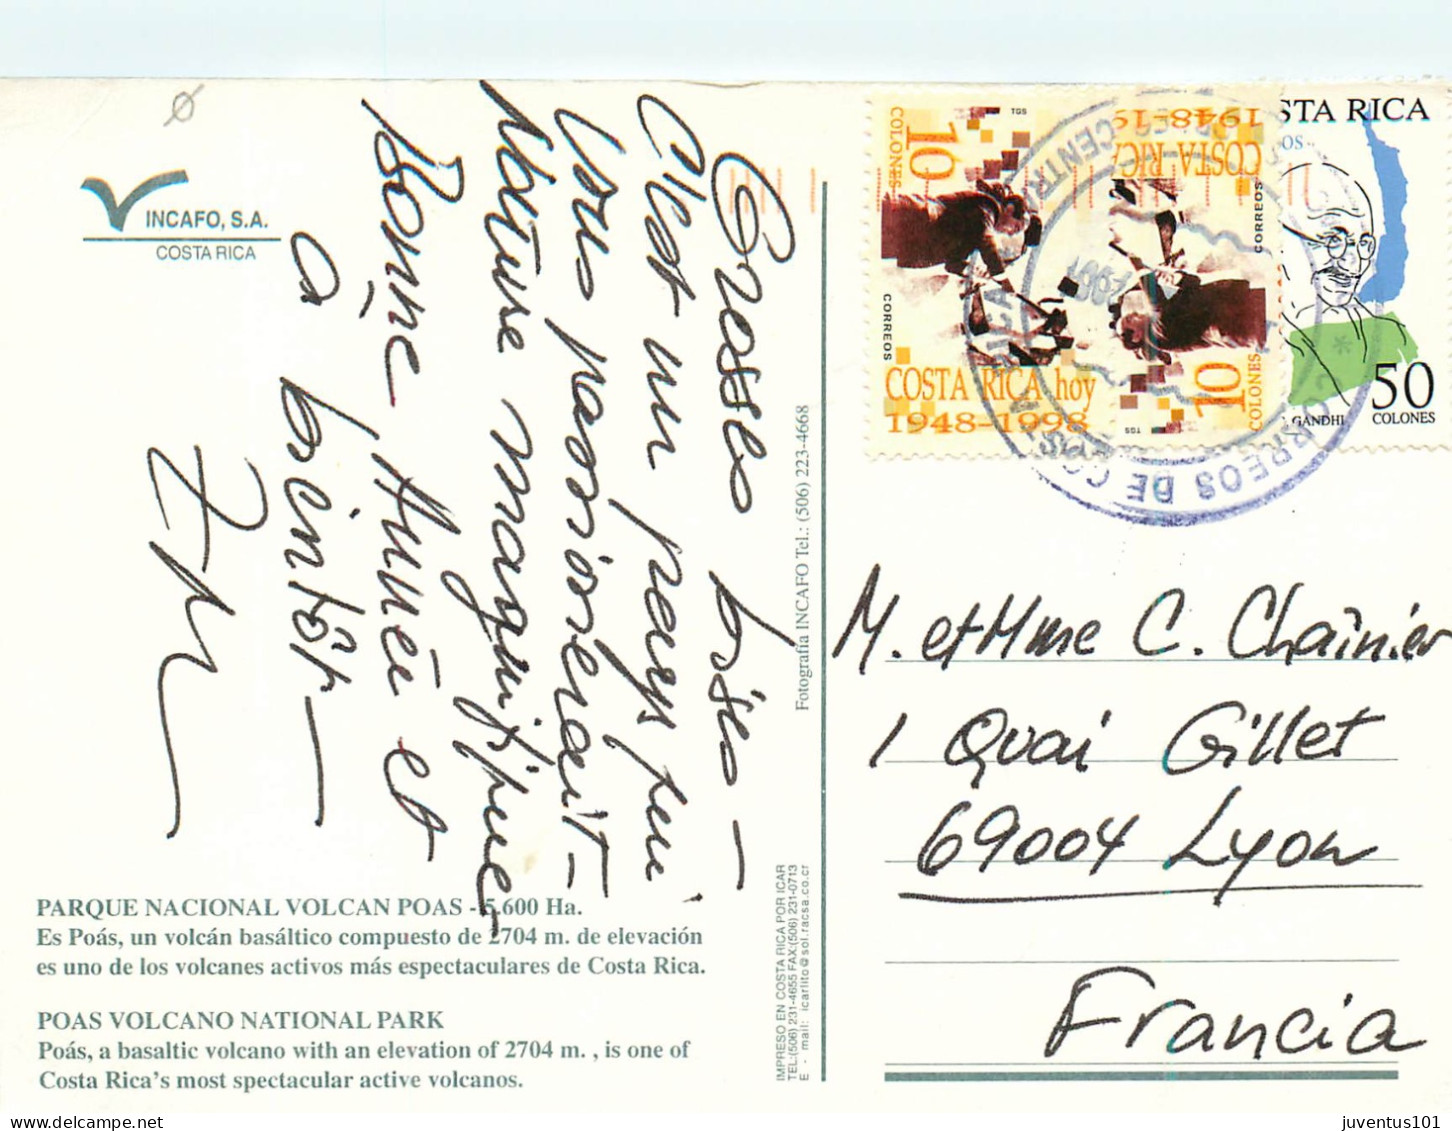 INCAFO, S.A.
COSTA RICA
Grosses bises –
C'est un pays qui
vous passionnerait –
Nature magnifique
Bonne Année et
à bientôt –
PARQUE NACIONAL VOLCAN POAS - 5,600 Ha.
Es Poás, un volcán basáltico compuesto de 2704 m. de elevación
es uno de los volcanes activos más espectaculares de Costa Rica.
POAS VOLCANO NATIONAL PARK
Poás, a basaltic volcano with an elevation of 2704 m. , is one of
Costa Rica's most spectacular active volcanos.
Fotografía INCAFO Tel.: (506) 223-4668
IMPRESO EN COSTA RICA POR ICAR
TEL:(506) 231-4655 FAX:(506) 231-0713
E - mail: icarlito@sol.racsa.co.cr
10
COLONES
TGS
CORREOS
COSTA RICA hoy
1948-1998
10
COLONES
TGS
CORREOS
COSTA RICA
1948-19
STA RICA
OS
GANDHI
50
COLONES
CORREOS DE COSTA RICA
M. et Mme C. Chaînier
1 Quai Gillet
69004 Lyon
Francia
juventus101